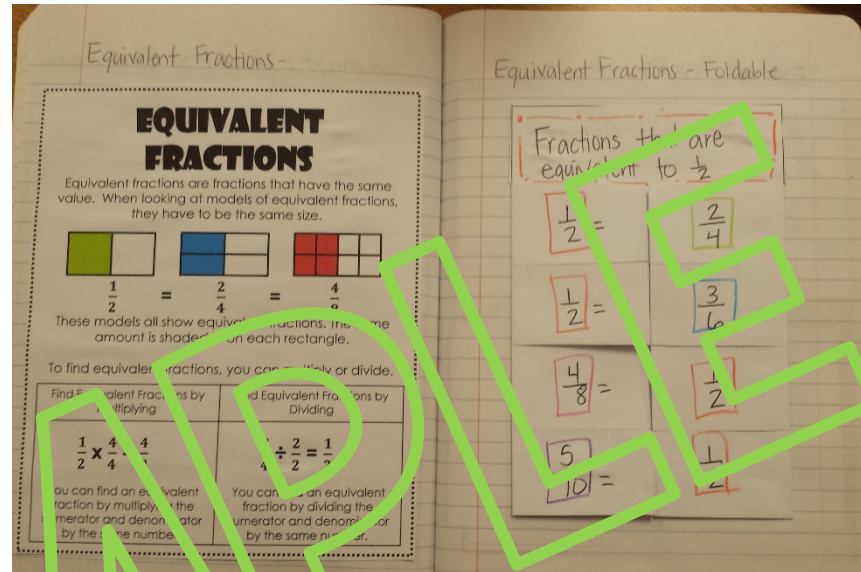 Equivalent Fractions -
EQUIVALENT
FRACTIONS
Equivalent fractions are fractions that have the same
value. When looking at models of equivalent fractions,
they have to be the same size.
1/2 = 2/4 = 4/8
These models all show equivalent fractions. The same
amount is shaded on each rectangle.
To find equivalent fractions, you can multiply or divide.
Find Equivalent Fractions by
Multiplying
1/2 x 4/4 = 4/
You can find an equivalent
fraction by multiplying the
numerator and denominator
by the same number.
Find Equivalent Fractions by
Dividing
/4 ÷ 2/2 = 1/2
You can find an equivalent
fraction by dividing the
numerator and denominator
by the same number.
Equivalent Fractions - Foldable
Fractions that are
equivalent to 1/2
1/2 = 2/4
1/2 = 3/6
4/8 = 1/2
5/10 = 1/2
MPLE